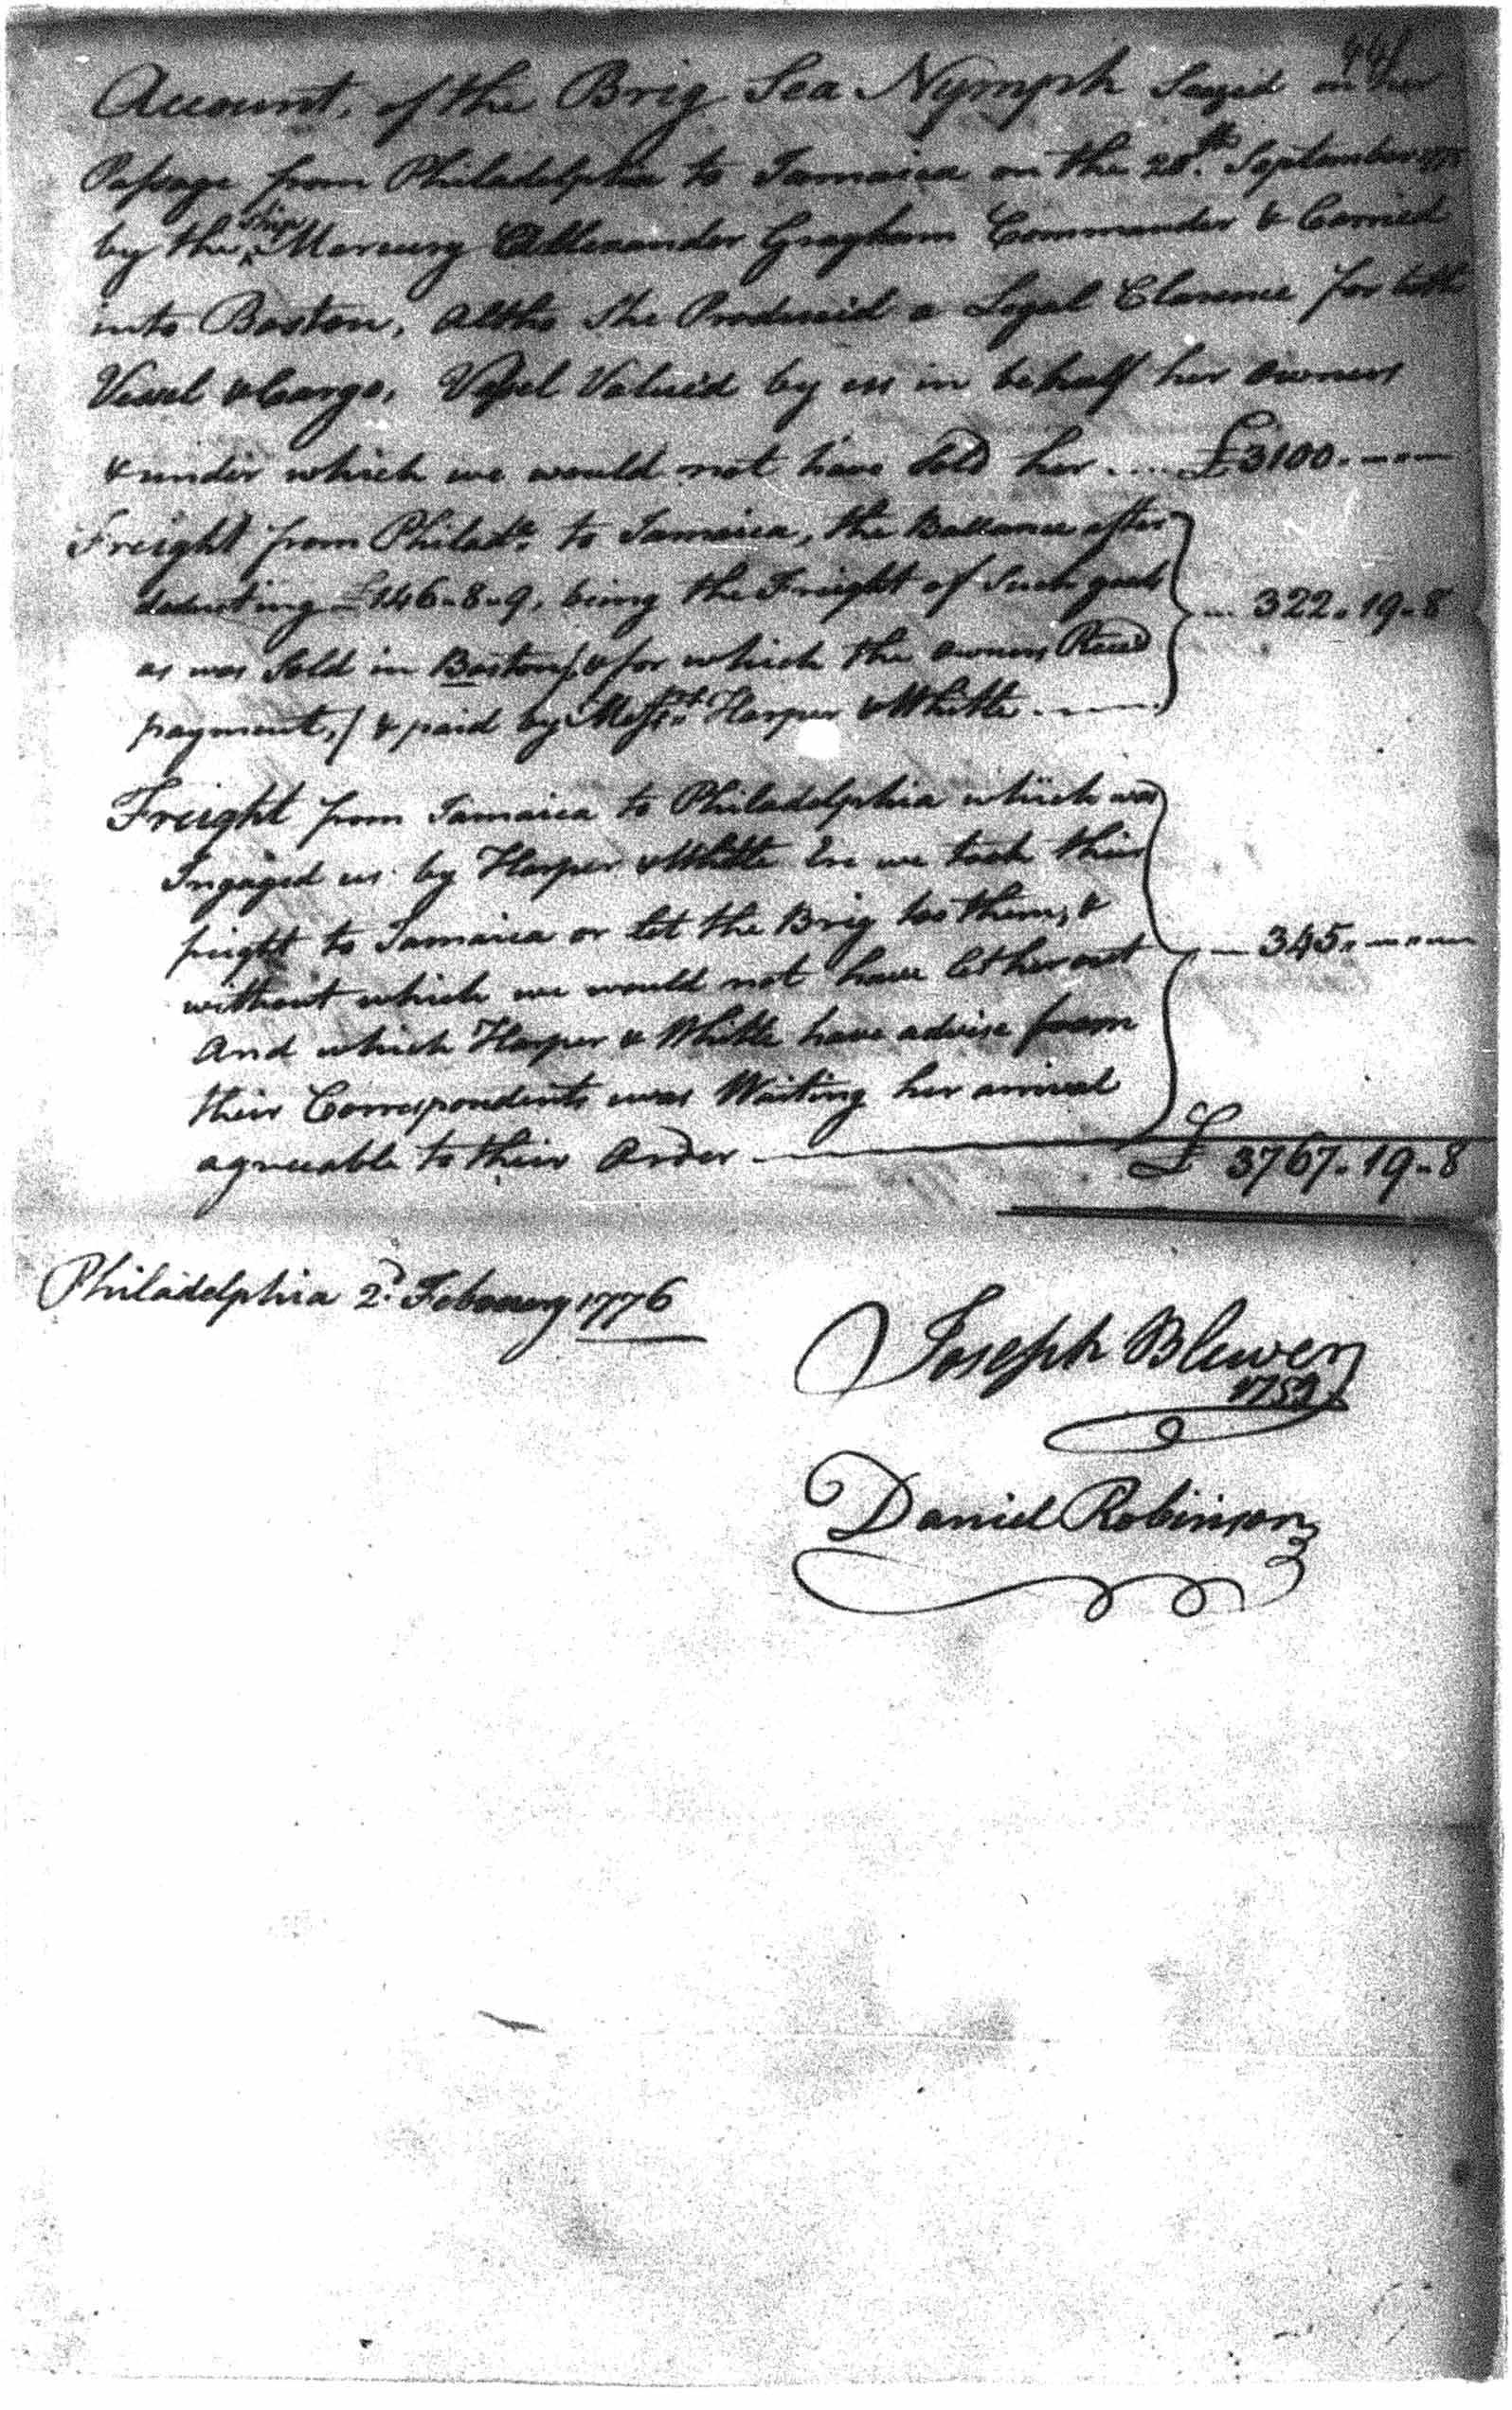 441
Account, of the Brig Sea Nymph Seazid on her
Passage from Philadelphia to Jamaica on the 28th. September 1775
by the ship Mercury Allexander Grayham Commander & Carried
into Boston, altho She Produceid a Legal Clarence for both
Vessel & Cargo, Vessel Valueid by us in behalf her owners
& under which we would not have Sold her .... £3100.
Freight from Philada. to Jamaica, the Ballance after
deducting £146-8-9, being the Freight of Such goods
as was Sold in Boston/ & for which the owners Receid ... 322-19-8
payment,/ & paid by Messrs. Harper & Whitle
Freight from Jamaica to Philadelphia which was
Ingaged us by Harper & Whitle Ere we took thier
frieght to Jamaica or let the Brig too them, &
without which we would not have let her out — 345.
And which Harper & Whitle have advise from
their Correspondents was Waiting her arrival
agreeable to their Order — £ 3767-19-8
Philadelphia 2d. Febuary 1776
Joseph Blewer
1752
Daniel Robinson